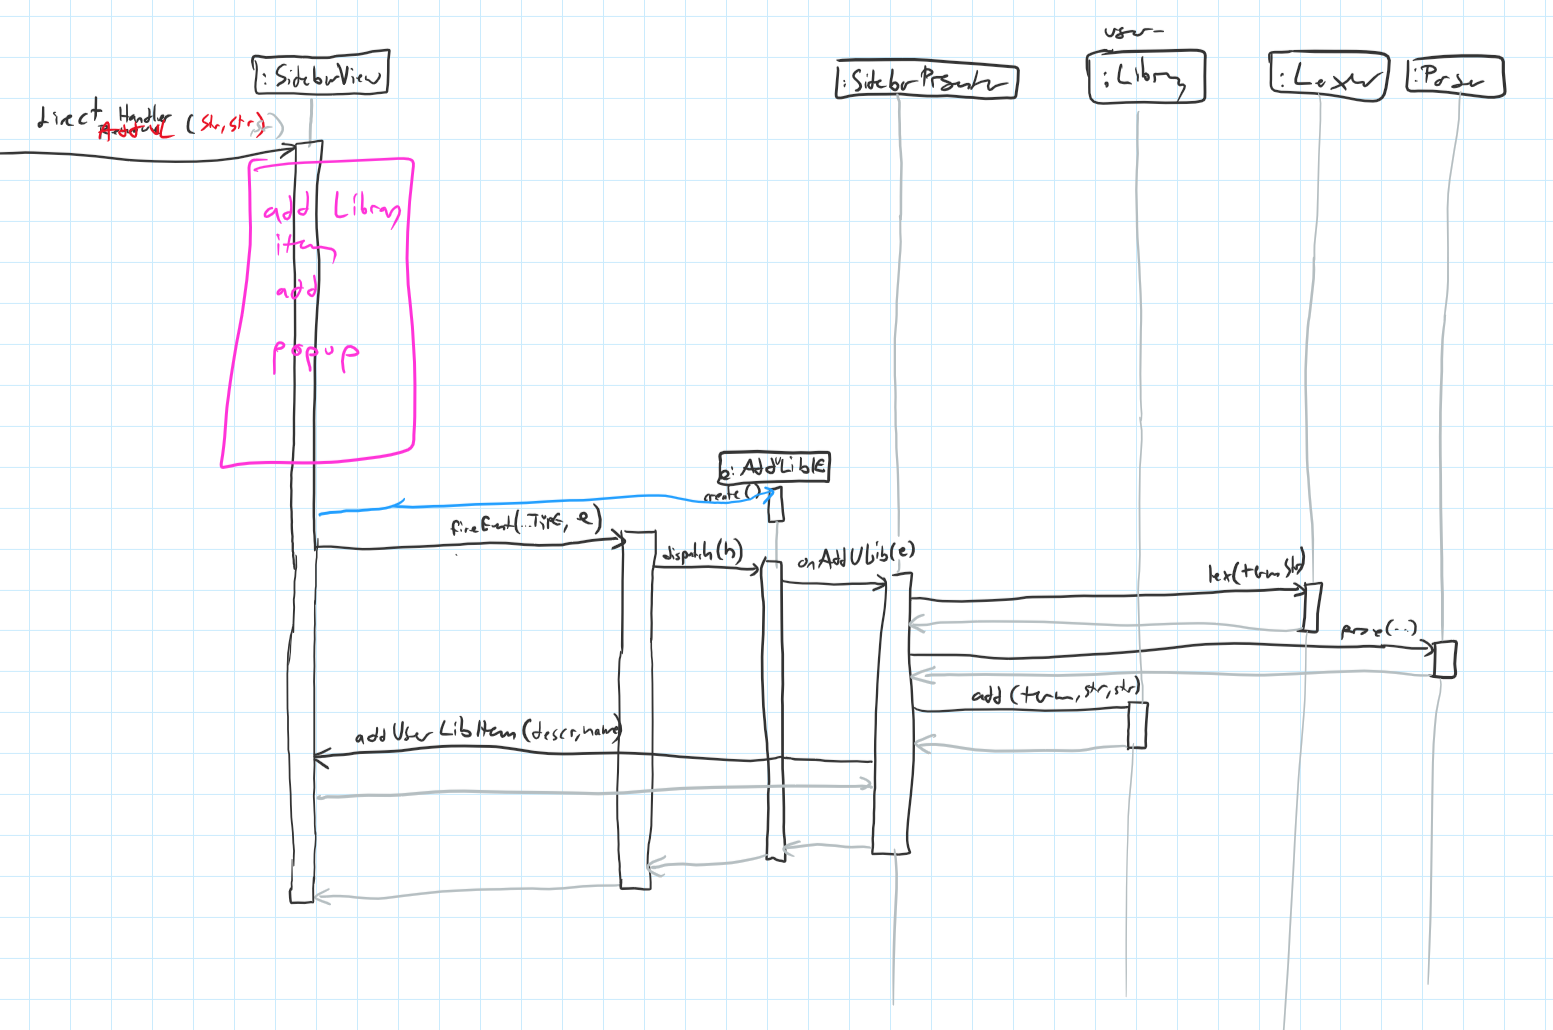 user-
:SidebarView
:SidebarPresenter
:Library
:Lexer
:Parser
direct Handler (str,str)
add Library
item
add
popup
e:AddULiblE
create()
fireEvent(...TYPE, e)
dispatch(h)
onAddULib(e)
lex(termStr)
parse(...)
add(term,str,str)
addUserLibItem(descr,name)